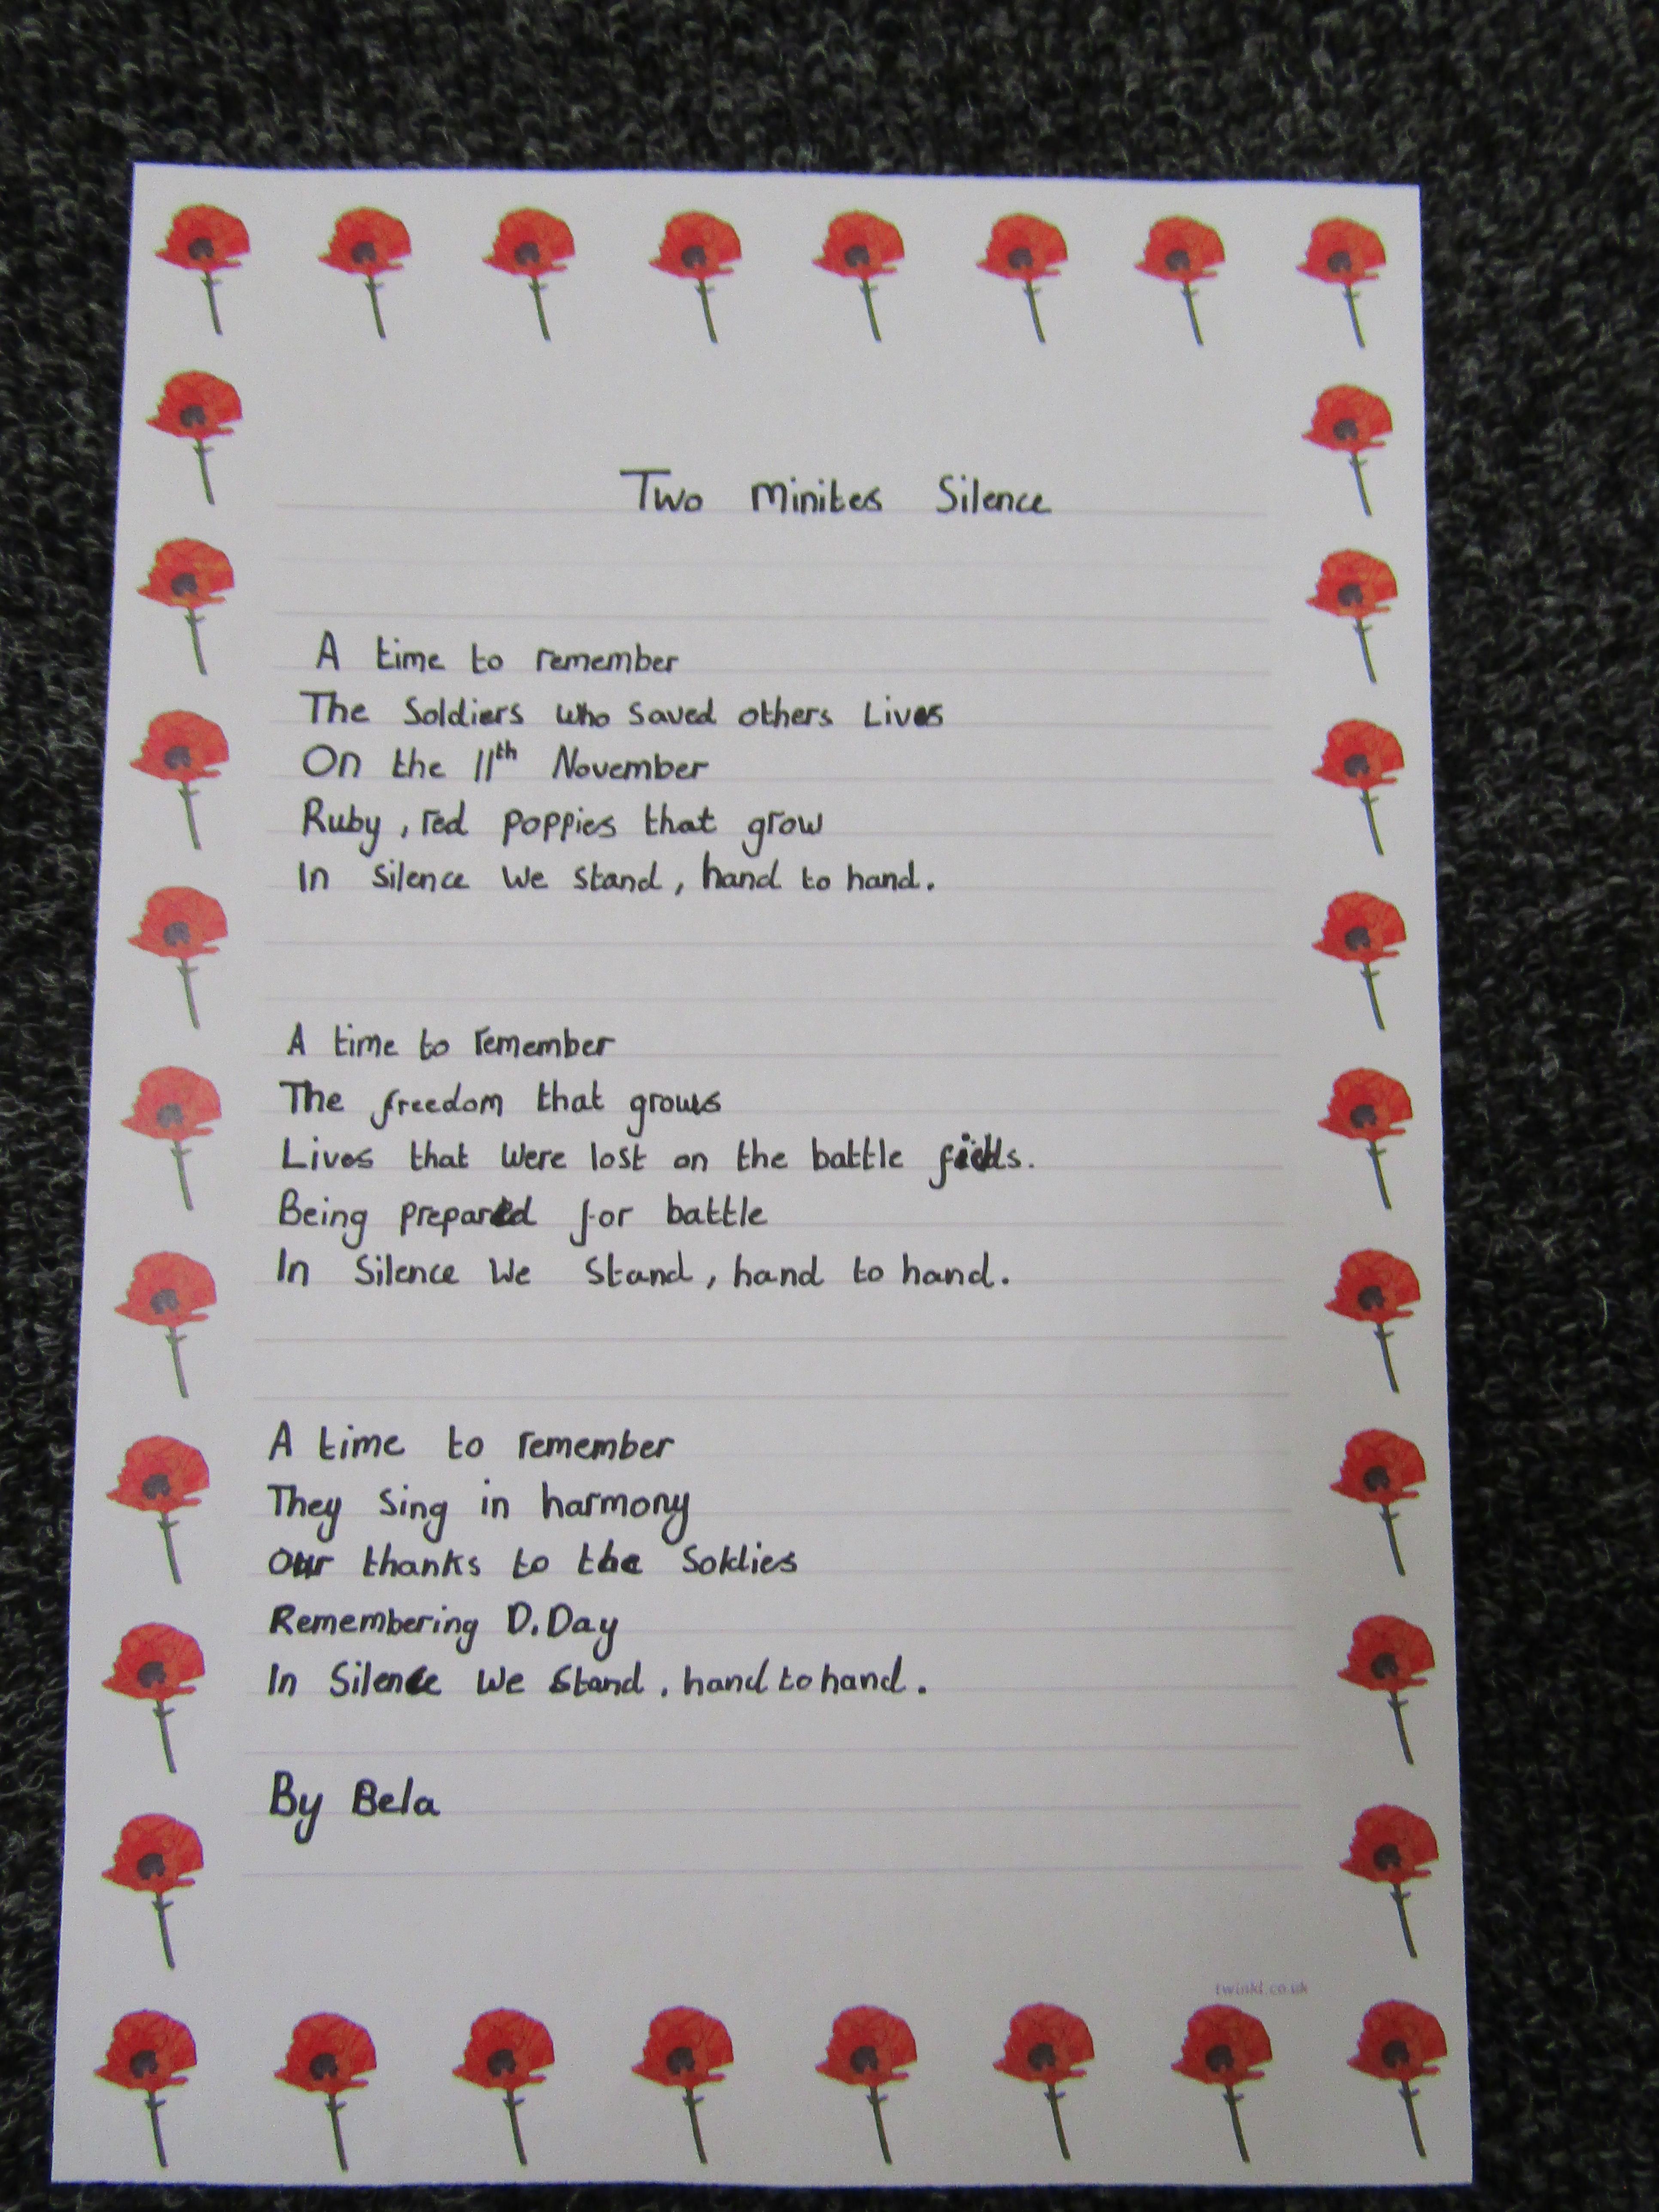 Two Minites Silence
A time to remember
The Soldiers who saved others Lives
On the 11th November
Ruby, red poppies that grow
In silence we stand, hand to hand.
A time to remember
The freedom that grows
Lives that were lost on the battle fields.
Being prepared for battle
In silence we stand, hand to hand.
A time to remember
They sing in harmony
Our thanks to the Soldies
Remembering D.Day
In silence we stand, hand to hand.
By Bela
twinkl.co.uk